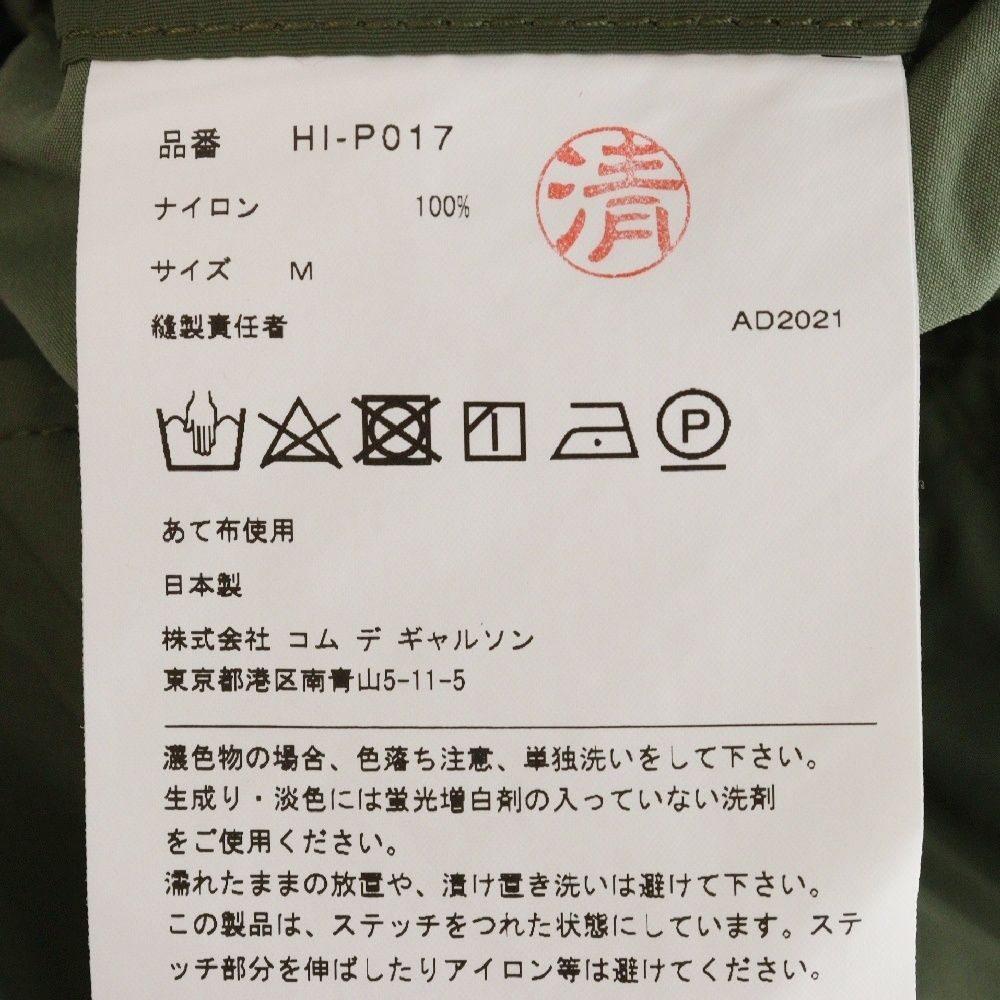 品番 HI-P017
清
ナイロン 100%
サイズ M
縫製責任者
AD2021
P
あて布使用
日本製
株式会社 コム デ ギャルソン
東京都港区南青山5-11-5
濃色物の場合、色落ち注意、単独洗いをして下さい。
生成り・淡色には蛍光増白剤の入っていない洗剤
をご使用ください。
濡れたままの放置や、漬け置き洗いは避けて下さい。
この製品は、ステッチをつれた状態にしています。ステ
ッチ部分を伸ばしたりアイロン等は避けてください。